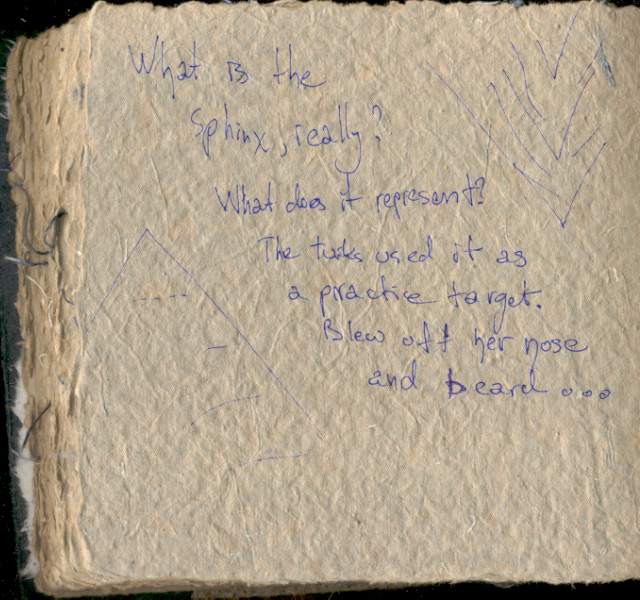 What is the
Sphinx, really?
What does it represent?
The turks used it as
a practice target.
Blew off her nose
and beard ...